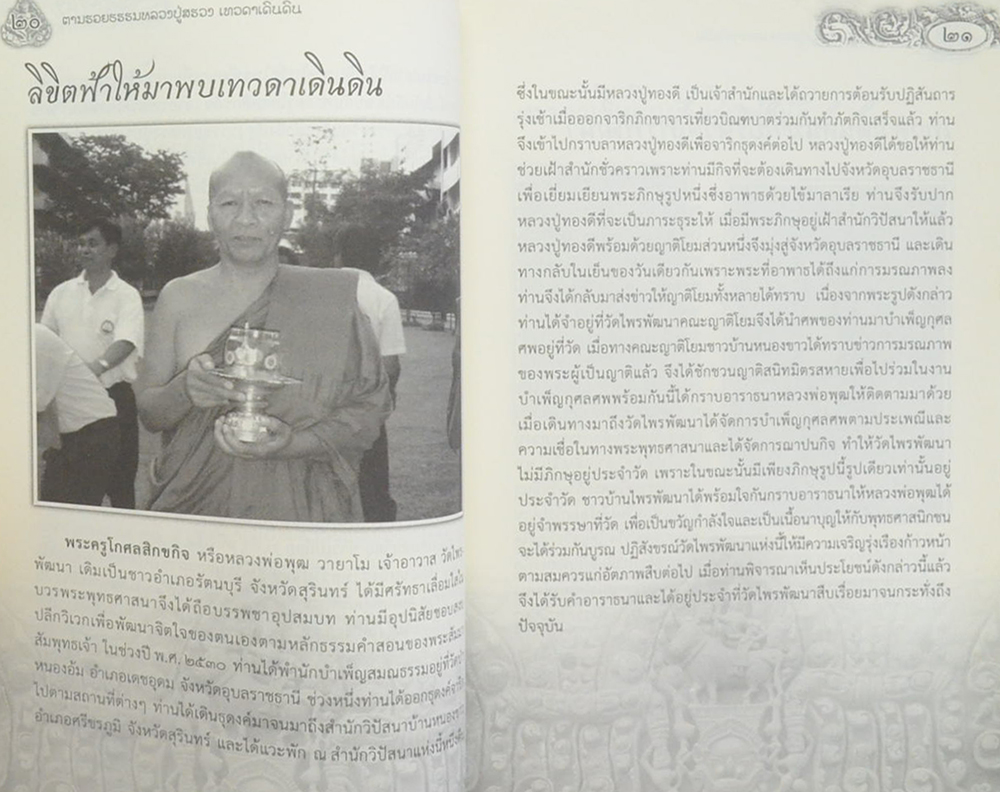 ๒๐
ตามรอยธรรมหลวงปู่สรวง เทวดาเดินดิน
ลิขิตฟ้าให้มาพบเทวดาเดินดิน
พระครูโกศลสิกขกิจ หรือหลวงพ่อพุฒ วายาโม เจ้าอาวาส วัดไพร
พัฒนา เดิมเป็นชาวอำเภอรัตนบุรี จังหวัดสุรินทร์ ได้มีศรัทธาเลื่อมใสใน
บวรพระพุทธศาสนาจึงได้ถือบรรพชาอุปสมบท ท่านมีอุปนิสัยชอบ
ปลีกวิเวกเพื่อพัฒนาจิตใจของตนเองตามหลักธรรมคำสอนของพระสัมมา
สัมพุทธเจ้า ในช่วงปี พ.ศ. ๒๕๓๐ ท่านได้พำนักบำเพ็ญสมณธรรมอยู่ที่วัด
หนองอัม อำเภอเดชอุดม จังหวัดอุบลราชธานี ช่วงหนึ่งท่านได้ออกธุดงค์
ไปตามสถานที่ต่างๆ ท่านได้เดินธุดงค์มาจนมาถึงสำนักวิปัสนาบ้านหนองขาว
อำเภอศรีขรภูมิ จังหวัดสุรินทร์ และได้แวะพัก ณ สำนักวิปัสนาแห่งนี้หนึ่งคืน
๒๑
ซึ่งในขณะนั้นมีหลวงปู่ทองดี เป็นเจ้าสำนักและได้ถวายการต้อนรับปฏิสันถาร
รุ่งเช้าเมื่อออกจาริกภิกขาจารเที่ยวบิณฑบาตร่วมกันทำภัตกิจเสร็จแล้ว ท่าน
จึงเข้าไปกราบลาหลวงปู่ทองดีเพื่อจาริกธุดงค์ต่อไป หลวงปู่ทองดีได้ขอให้ท่าน
ช่วยเฝ้าสำนักชั่วคราวเพราะท่านมีกิจที่จะต้องเดินทางไปจังหวัดอุบลราชธานี
เพื่อเยี่ยมเยียนพระภิกษุรูปหนึ่งซึ่งอาพาธด้วยไข้มาลาเรีย ท่านจึงรับปาก
หลวงปู่ทองดีที่จะเป็นภาระธุระให้ เมื่อมีพระภิกษุอยู่เฝ้าสำนักวิปัสนาให้แล้ว
หลวงปู่ทองดีพร้อมด้วยญาติโยมส่วนหนึ่งจึงมุ่งสู่จังหวัดอุบลราชธานี และเดิน
ทางกลับในเย็นของวันเดียวกันเพราะพระที่อาพาธได้ถึงแก่การมรณภาพลง
ท่านจึงได้กลับมาส่งข่าวให้ญาติโยมทั้งหลายได้ทราบ เนื่องจากพระรูปดังกล่าว
ท่านได้จำอยู่ที่วัดไพรพัฒนาคณะญาติโยมจึงได้นำศพของท่านมาบำเพ็ญกุศล
ศพอยู่ที่วัด เมื่อทางคณะญาติโยมชาวบ้านหนองขาวได้ทราบข่าวการมรณภาพ
ของพระผู้เป็นญาติแล้ว จึงได้ชักชวนญาติสนิทมิตรสหายเพื่อไปร่วมในงาน
บำเพ็ญกุศลศพพร้อมกันนี้ได้กราบอาราธนาหลวงพ่อพุฒให้ติดตามมาด้วย
เมื่อเดินทางมาถึงวัดไพรพัฒนาได้จัดการบำเพ็ญกุศลศพตามประเพณีและ
ความเชื่อในทางพระพุทธศาสนาและได้จัดการฌาปนกิจ ทำให้วัดไพรพัฒนา
ไม่มีภิกษุอยู่ประจำวัด เพราะในขณะนั้นมีเพียงภิกษุรูปนี้รูปเดียวเท่านั้นอยู่
ประจำวัด ชาวบ้านไพรพัฒนาได้พร้อมใจกันกราบอาราธนาให้หลวงพ่อพุฒได้
อยู่จำพรรษาที่วัด เพื่อเป็นขวัญกำลังใจและเป็นเนื้อนาบุญให้กับพุทธศาสนิกชน
จะได้ร่วมกันบูรณ ปฏิสังขรณ์วัดไพรพัฒนาแห่งนี้ให้มีความเจริญรุ่งเรืองก้าวหน้า
ตามสมควรแก่อัตภาพสืบต่อไป เมื่อท่านพิจารณาเห็นประโยชน์ดังกล่าวนี้แล้ว
จึงได้รับคำอาราธนาและได้อยู่ประจำที่วัดไพรพัฒนาสืบเรื่อยมาจนกระทั่งถึง
ปัจจุบัน